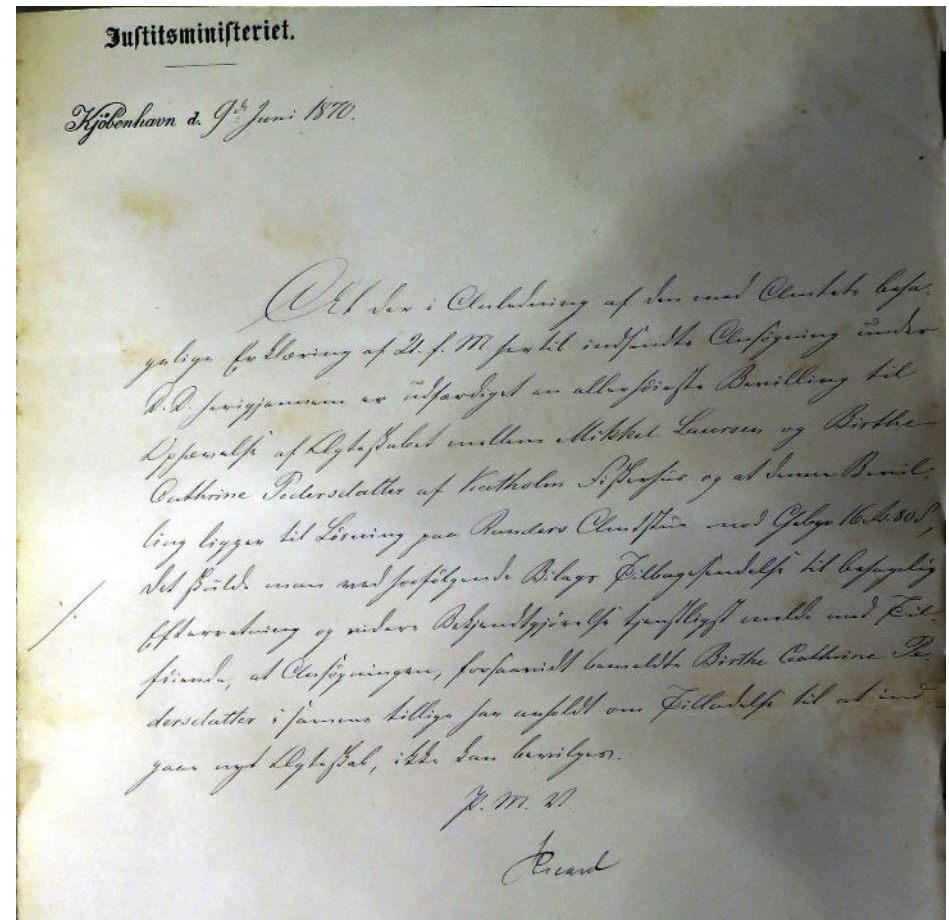 Justitsministeriet.
Kjöbenhavn d. 9de Juni 1870.
At der i Anledning af den med Amtets beha-
gelige Erklæring af 21. f. M. hertil indsendte Ansøgning under
D. D. herigjennem er udfærdiget en allerhöieste Bevilling til
Ophævelse af Ægteskabet mellem Mikkel Laursen og Birthe
Cathrine Pedersdatter af Katholm Fiskerhuse og at denne Bevil-
ling ligger til Lösning paa Randers Amtstue mod Gebyr 16 rd. 80 s,
det skulde man ved hosfølgende Bilags Tilbagesendelse til behagelig
Efterretning og videre Bekjendtgjørelse tjenstligst melde med Til-
föiende, at Ansøgningen, forsaavidt bemeldte Birthe Cathrine Pe-
dersdatter i samme tillige har anholdt om Tilladelse til at ind-
gaae nyt Ægteskab, ikke kan bevilges.
P. M. V.
Ricard